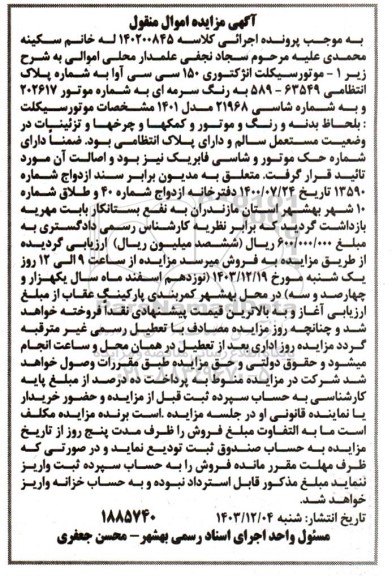 آگهی مزایده اموال منقول
به موجب پرونده اجرائی کلاسه ۱۴۰۲۰۰۸۴۵ له خانم سکینه
محمدی علیه مرحوم سجاد نجفی علمدار محلی اموالی به شرح
زیر ۱ - موتورسیکلت انژکتوری ۱۵۰ سی سی آوا به شماره پلاک
انتظامی ۶۳۵۴۹ - ۵۸۹ به رنگ سرمه ای به شماره موتور ۲۰۲۶۱۷
و به شماره شاسی ۲۱۹۶۸ مدل ۱۴۰۱ مشخصات موتورسیکلت
: بلحاظ بدنه و رنگ و موتور و کمکها و چرخها و تزئینات در
وضعیت مستعمل سالم و دارای پلاک انتظامی بود. ضمناً دارای
شماره حک موتور و شاسی فابریک نیز بود و اصالت آن مورد
تائید قرار گرفت. متعلق به مدیون برابر سند ازدواج شماره
۱۳۵۹۰ تاریخ ۱۴۰۰/۰۷/۲۴ دفترخانه ازدواج شماره ۴۰ و طلاق شماره
۱۰ شهر بهشهر استان مازندران به نفع بستانکار بابت مهریه
بازداشت گردید که برابر نظریه کارشناس رسمی دادگستری به
مبلغ ۶۰۰/۰۰۰/۰۰۰ ریال (ششصد میلیون ریال) ارزیابی گردیده
از طریق مزایده به فروش میرسد مزایده از ساعت ۹ الی ۱۲ روز
یک شنبه مورخ ۱۴۰۳/۱۲/۱۹ (نوزدهم اسفند ماه سال یکهزار و
چهارصد و سه) در محل بهشهر کمربندی پارکینگ عقاب از مبلغ
ارزیابی آغاز و به بالاترین قیمت پیشنهادی نقداً فروخته خواهد
شد و چنانچه روز مزایده مصادف با تعطیل رسمی غیر مترقبه
گردد مزایده روز اداری بعد از تعطیل در همان محل و ساعت انجام
میشود و حقوق دولتی و حق مزایده طبق مقررات وصول خواهد
شد شرکت در مزایده منوط به پرداخت ده درصد از مبلغ پایه
کارشناسی به حساب سپرده ثبت قبل از مزایده و حضور خریدار
یا نماینده قانونی او در جلسه مزایده .است برنده مزایده مکلف
است ما به التفاوت مبلغ فروش را ظرف مدت پنج روز از تاریخ
مزایده به حساب صندوق ثبت تودیع نماید و در صورتی که
ظرف مهلت مقرر مانده فروش را به حساب سپرده ثبت واریز
ننماید مبلغ مذکور قابل استرداد نبوده و به حساب خزانه واریز
خواهد شد.
تاریخ انتشار: شنبه ۱۴۰۳/۱۲/۰۴ ۱۸۸۵۷۴۰
مسئول واحد اجرای اسناد رسمی بهشهر - محسن جعفری